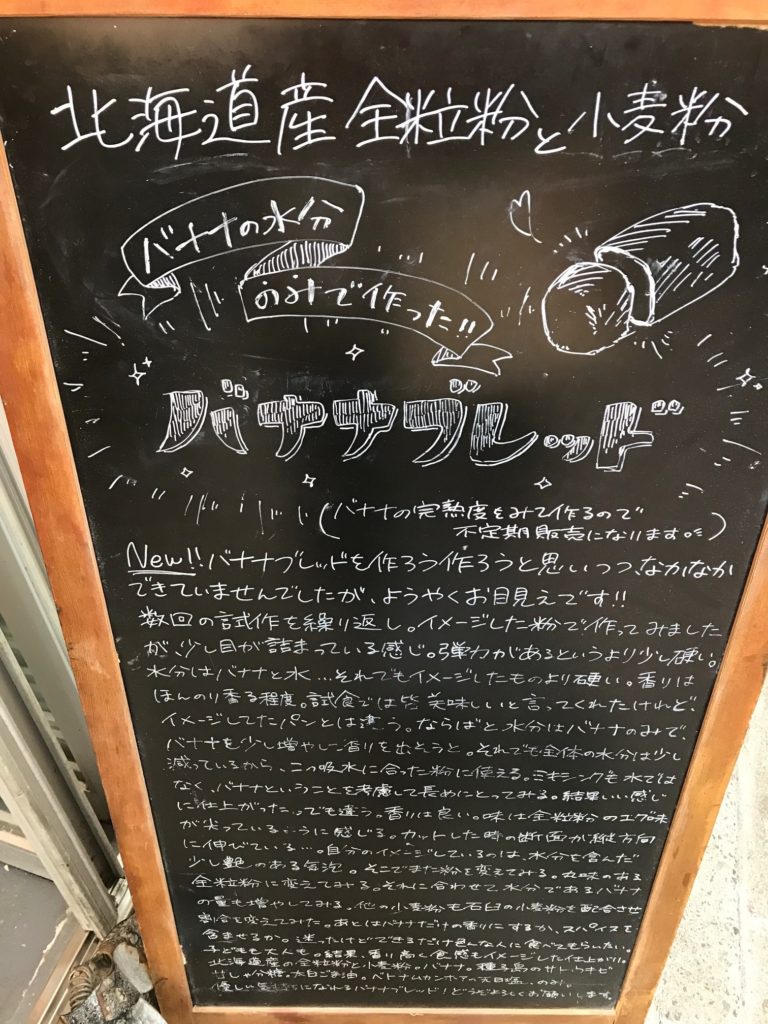 北海道産全粒粉と小麦粉
バナナの水分
のみで作った!!
バナナブレッド
(バナナの完熟度をみて作るので
不定期販売になります。)
New!! バナナブレッドを作ろう作ろうと思いつつ、なかなか
できていませんでしたが、ようやくお目見えです!!
数回の試作を繰り返し。イメージした粉で作ってみました
が、少し目が詰まっている感じ。弾力があるというより少し硬い。
水分はバナナと水…それでもイメージしたものより硬い。香りは
ほんのり香る程度。試食では皆美味しいと言ってくれたけれど、
イメージしてたパンとは違う。ならばと水分はバナナのみで、
バナナを少し増やし香りを出そうと。それでも全体の水分は少し
減っているから、この吸水に合った粉に変える。ミキシングも水では
なく、バナナということを考慮して長めにとってみる。結果いい感じ
に仕上がった…でも違う。香りは良い。味は全粒粉のエグ味
が尖っているように感じる。カットした時の断面が縦方向
に伸びている…。自分のイメージしているのは、水分を含んだ
少し艶のある気泡。そこでまた粉を変えてみる。丸味のある
全粒粉に変えてみる。それに合わせて水分であるバナナ
の量も増やしてみる。他の小麦粉も石臼の小麦粉を配合させ
割合を変えてみた。あとはバナナだけの香りにするか、スパイスを
含ませるか。迷ったけどできるだけ色んな人に食べてもらいたい。
子どもも大人も。結果、香り高く食感もイメージした仕上がり。
北海道産の全粒粉と小麦粉。バナナ。種子島のサトウキビ
甘しゃ分糖。太白ごま油。ベトナムカンホアの天日塩…のみ。
優しい になれるバナナブレッド!どうぞよろしくお願いします。